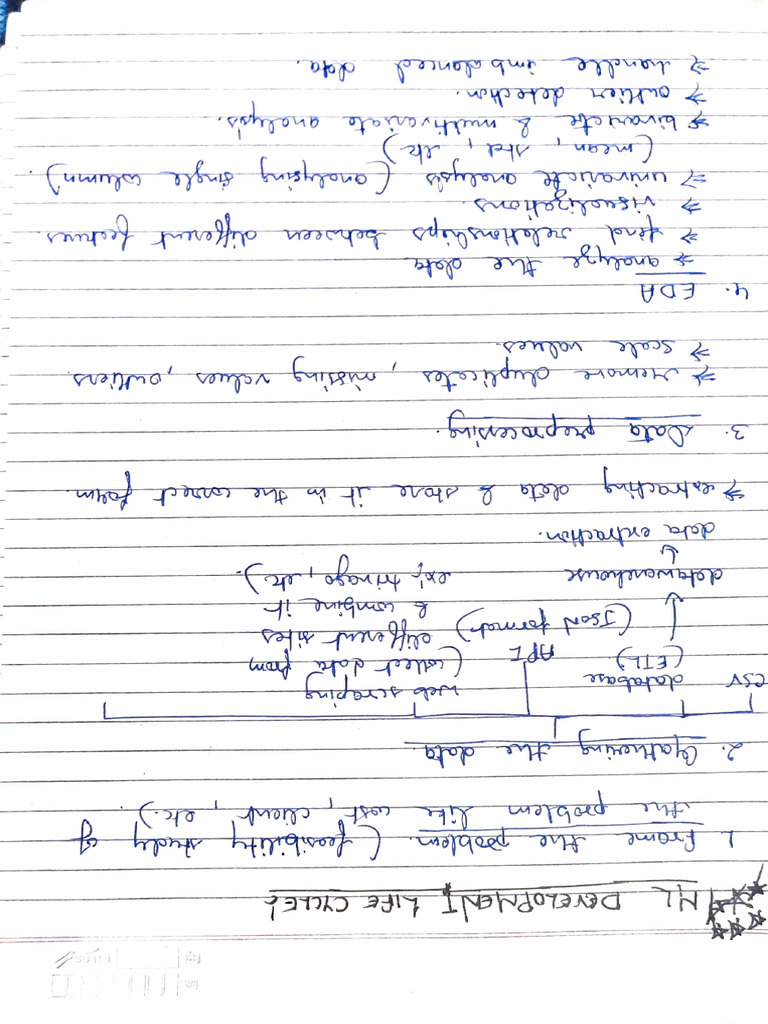 ML DEVELOPMENT LIFE CYCLE:
1. Frame the problem. (feasibility study of
the problem like cost, client, etc.)
2. Gathering the data.
CSV database API web scraping
(ETL) (JSON format) (collect data from
different sites
& combine it
datawarehouse ex: trivago, etc).
data extraction.
→ extracting data & store it in the correct form.
3. Data preprocessing.
→ remove duplicates, missing values, outliers.
→ scale values.
4. EDA
→ analyze the data
→ find relationships between different features.
→ visualizations.
→ univariate analysis (analysing single column).
(mean, std, etc)
→ bivariate & multivariate analysis.
→ outlier detection.
→ handle imbalanced data.